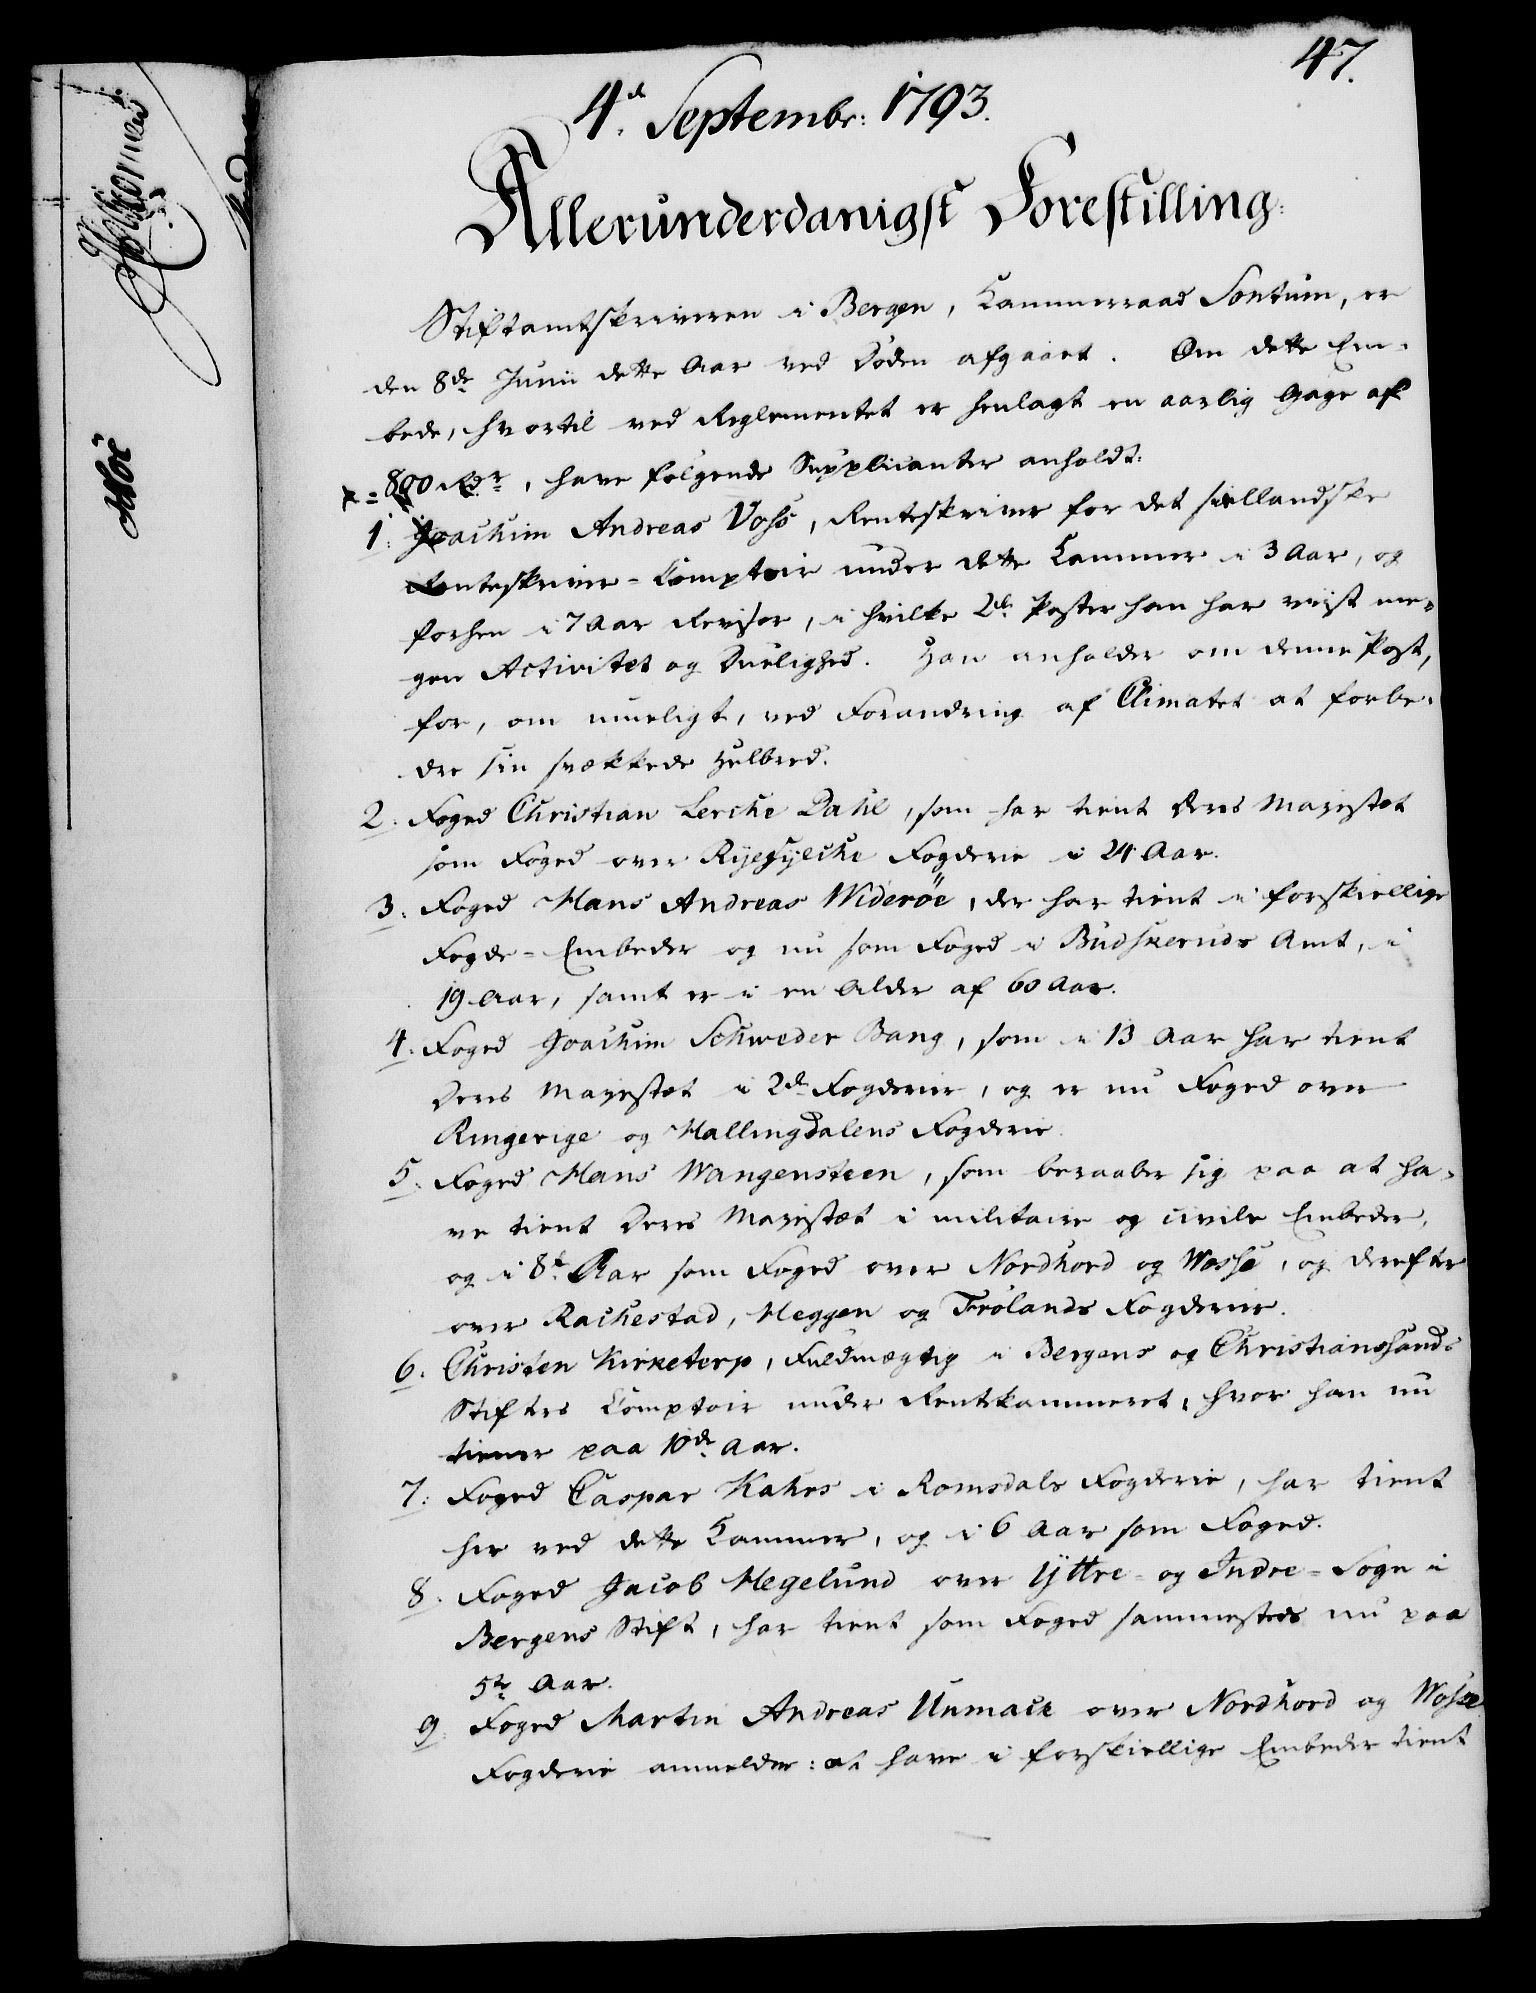 47.
4d. Septembr: 1793.
Allerunderdanigst Forestilling:
Stiftamtskriveren i Bergen, Kammerraad Sontum, er
den 8de Junii dette Aar ved Døden afgaaet. Om dette Em-
bede, hvortil ved Reglementet er henlagt en aarlig Gage af
800 Rdr, have følgende Supplicanter anholdt:
1. Joachim Andreas Voss, Renteskriver for det siællandske
Renteskriver-Comptoir under dette Kammer i 3 Aar, og
forhen i 7 Aar Revisor, i hvilke 2de Poster han har viist me-
gen Activitet og Duelighed. Han anholder om denne Post,
for, om mueligt, ved Forandring af Climatet at forbe-
dre sin svækkede Helbred.
2. Foged Christian Lerche Dahl, som har tient Deres Majestæt
som Foged over Ryefylche Fogderie i 24 Aar.
3. Foged Hans Andreas Widerøe, der har tient i forskiellige
Fogde-Embeder og nu som Foged i Budskeruds Amt, i
19 Aar, samt er i en Alder af 60 Aar.
4. Foged Joachim Schweder Bang, som i 13 Aar har tient
Deres Majestæt i 2de Fogderier, og er nu Foged over
Ringerige og Hallingdalens Fogderie.
5. Foged Hans Wangensteen, som beraaber sig paa at ha-
ve tient Deres Majestæt i militaire og civile Embeder,
og i 8t Aar som Foged over Nordhord og Wosse, og derefter
over Rachestad, Heggen og Frølands Fogderier.
6. Christen Kirketerp, Fuldmægtig i Bergens og Christianssands
Stifters Comptoir under Rentekammeret, hvor han nu
tiener paa 10de Aar.
7. Foged Caspar Kahrs i Romsdals Fogderie, har tient
her ved dette Kammer, og i 6 Aar som Foged.
8. Foged Jacob Hegelund over Yttre- og Indre-Sogn i
Bergens Stift, har tient som Foged sammesteds nu paa
5te Aar.
9. Foged Martin Andreas Unmack over Nordhord og Wosse
Fogderie anmelder: at have i forskiellige Embeder tient